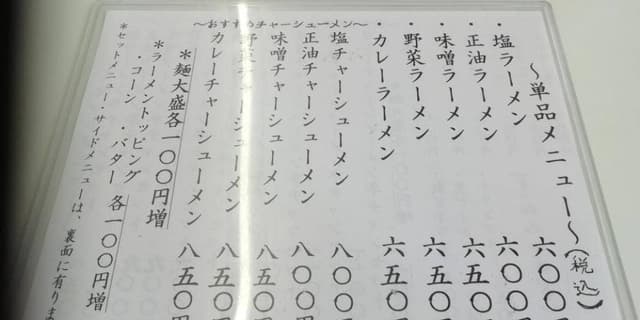 ～単品メニュー～(税込)
・塩ラーメン 六〇〇
・正油ラーメン 六〇〇
・味噌ラーメン 六五〇
・野菜ラーメン 六五〇
・カレーラーメン 六五〇円
～おすすめチャーシューメン～
塩チャーシューメン 八〇〇
正油チャーシューメン 八〇〇
味噌チャーシューメン 八五〇
野菜チャーシューメン 八五〇
カレーチャーシューメン 八五〇円
＊麺大盛各一〇〇円増
＊ラーメントッピング
・コーン ・バター 各一〇〇円増
＊セットメニュー・サイドメニューは、裏面に有りま